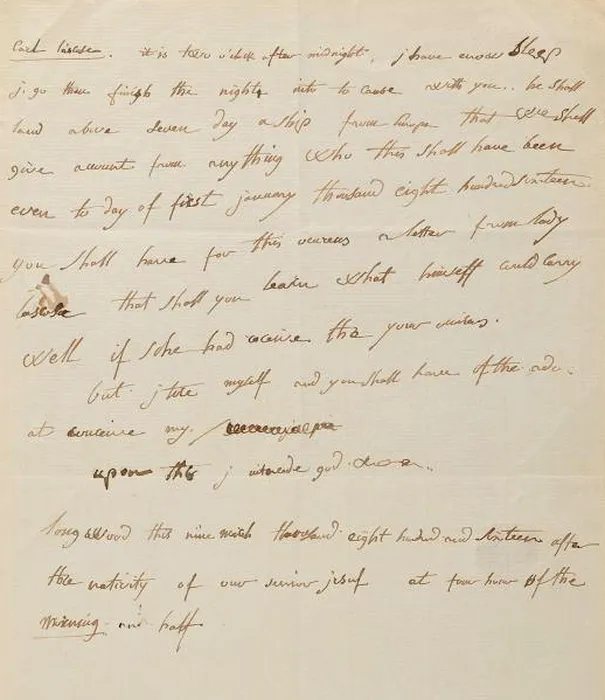 Cout lascase. it is two o'clok after midnight, j have enow sleep
j go then finish the night into to cause with you.. he shall
land above seven day a ship from Europe that we shell
give account from anything who this shall have been
even to day of first january thousand eight hundred sixteen.
you shall have for this ocurens a letter from lady
lascase that shall you learn what himself could carry
well if she had occeive the your ouiens.
but j tire myself and you shall have of the ado-
at conceive my
upon this j intercede god
longwood this nine mich thousand eight hundred and sixteen after
the nativity of our senior jesus at four hour of the
morning and half